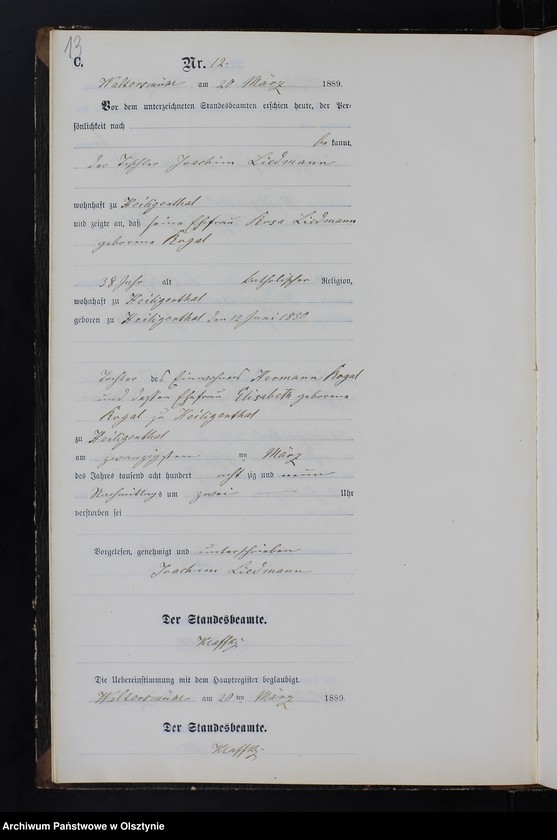 13
C.
Nr. 12.
Waltersmühl am 20 März 1889.
Vor dem unterzeichneten Standesbeamten erschien heute, der Per-
sönlichkeit nach
be kannt,
der Tischler Joachim Liedmann
wohnhaft zu Heiligenthal
und zeigte an, daß seine Ehefrau Rosa Liedmann
geborene Kogal
38 Jahr alt katholischer Religion,
wohnhaft zu Heiligenthal
geboren zu Heiligenthal den 12 Juni 1850
Tochter des Einwohners Hermann Kogal
und dessen Ehefrau Elisabeth geborene
Kogal zu Heiligenthal
zu Heiligenthal
am zwanzigsten ten März
des Jahres tausend acht hundert acht zig und neun
Nachmittags um zwei Uhr
verstorben sei
Vorgelesen, genehmigt und unterschrieben
Joachim Liedmann
Der Standesbeamte.
Kraffky
Die Uebereinstimmung mit dem Hauptregister beglaubigt.
Waltersmühl am 20 ten März 1889.
Der Standesbeamte.
Kraffky
Archiwum Państwowe w Olsztynie